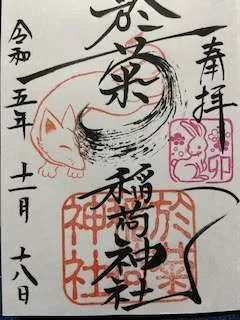 奉拝
卯
於菊
稲荷神社
於菊稲荷神社
令和五年 十一月 十八日